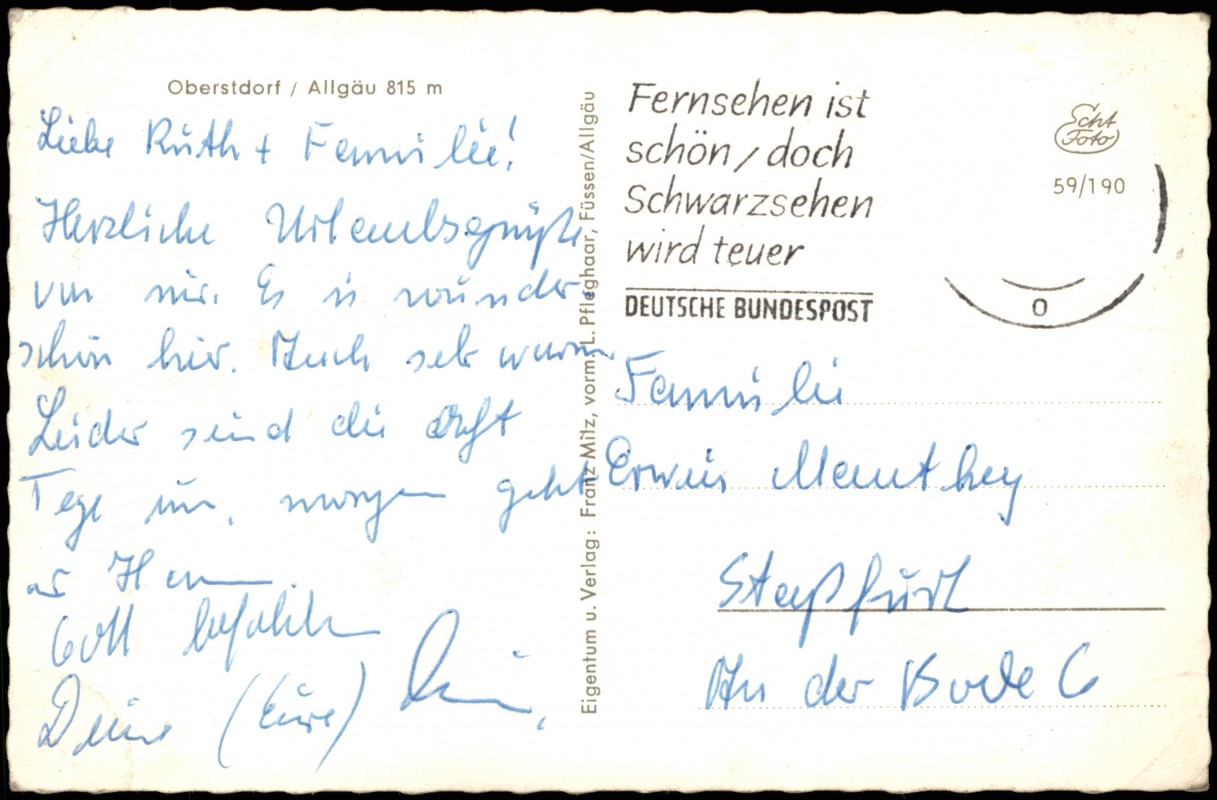 Oberstdorf / Allgäu 815 m
Liebe Ruth + Familie!
Herzliche Urlaubsgrüße
von mir. Es is wunder
schön hier. Auch sehr warm.
Leider sind die acht
Tage um, morgen geht
es Heim.
Gott befohlen
Deine (Eure)
Eigentum u. Verlag: Franz Milz, vorm. L. Pfleghaar, Füssen/Allgäu
Fernsehen ist
schön / doch
Schwarzsehen
wird teuer
DEUTSCHE BUNDESPOST
Echt
Foto
59/190
o
Familie
Erwin Manthey
Staßfurt
An der Bode 6